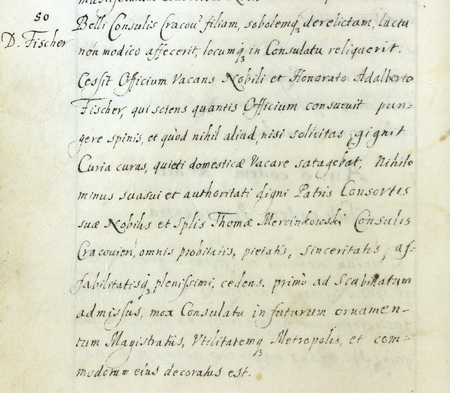 50
D. Fischer
Belli Consulis Cracouˢ filiam, sobolemq₃ derelictam, luctu
non modico affecerit, locumq₃ in Consulatu reliquerit.
Cessit Officium Vacans Nobili et Honorato Adalberto
Fischer, qui sciens quantis Officium consueuit pun-
gere spinis, et quòd nihil aliud, nisi solicitas gignit
Curia curas, quieti domesticæ Vacare satagebat, Nihilo
minus suasui et authoritati digni Patris Consortis
suæ Nobilis et Splis Thomæ Mercinkowski Consulis
Cracouien, omnis probitatis, pietatis, sinceritatis, af-
fabilitatisq₃ plenissimi, cedens, primò ad Scabinatum
admissus, mox Consulatu in futurum ornamen-
tum Magistratûs, Vtilitatemq₃ Metropolis, et com-
modorum eius decoratus est.